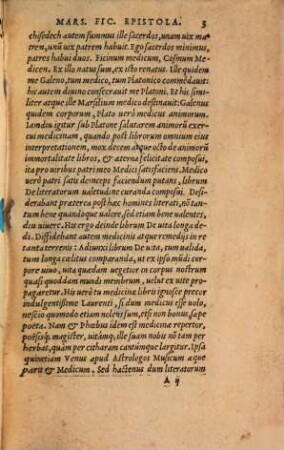 MARS. FIC. EPISTOLA. 3
chisedech autem summus ille sacerdos, unam uix ma-
trem, unũ uix patrem habuit. Ego sacerdos minimus,
patres habui duos. Ficinum medicum, Cosmum Me-
dicen. Ex illo natus sum, ex isto renatus. Ille quidem
me Galeno, tum medico, tum Platonico commẽdauit:
hic autem diuino consecrauit me Platoni. Et hic simi-
liter atque ille Marsilium medico destinauit: Galenus
quidem corporum, Plato uerò medicus animorum.
Iamdiu igitur sub Platone salutarem animorũ exer-
cui medicinam, quando post librorum omnium eius
interpretationem, mox decem atque octo de animorũ
immortalitate libros, & æterna felicitate composui,
ita pro uiribus patri meo Medici satisfaciens. Medico
uerò patri satis deinceps faciendum putans, librum
De literatorum ualetudine curanda composui. Desi-
derabant præterea post hæc homines literati, nõ tan-
tum bene quandoque ualere, sed etiam bene ualentes,
diu uiuere. His ergo deinde librum De uita longa de-
di. Diffidebant autem medicinis atque remedijs in re
tanta terrenis: Adiunxi librum De uita, tum ualida,
tum longa cœlitus comparanda, ut ex ipso mũdi cor-
pore uiuo, uita quædam uegetior in corpus nostrum
quasi quoddam mundi membrum, uelut ex uite pro-
pagaretur. His uerò tu medicinæ libris ignosce precor
indulgentissime Laurenti, si dum medicus esse uolo,
nescio quomodo etiam nolens sum, etsi non bonus, sæpe
poëta. Nam & Phœbus idem est medicinæ repertor,
poësisq́; magister, uitamq́; ille suam nobis nõ tam per
herbas, quàm per citharam cantumque largitur. Ipsa
quinetiam Venus apud Astrologos Musicum æque
parit & Medicum. Sed hactenus dum literatorum
A ij